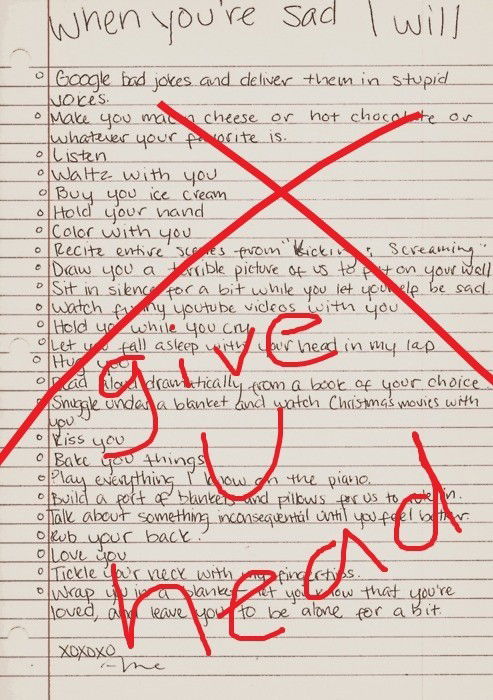 When you're sad I will
Google bad jokes and deliver them in stupid
voices.
Make you mac n cheese or hot chocolate or
whatever your favorite is.
Listen
Waltz with you
Buy you ice cream
Hold your hand
Color with you
Recite entire scenes from "Kicking & Screaming"
Draw you a terrible picture of us to put on your wall
Sit in silence for a bit while you let yourself be sad
Watch funny youtube videos with you
Hold you while you cry
Let you fall asleep with your head in my lap
Hug you
Read aloud dramatically from a book of your choice
Snuggle under a blanket and watch Christmas movies with
you
Kiss you
Bake you things
Play everything I know on the piano.
Build a fort of blankets and pillows for us to hide in.
Talk about something inconsequential until you feel better.
Rub your back.
Love you
Tickle your neck with my fingertips.
Wrap you in a blanket, let you know that you're
loved, and leave you to be alone for a bit.
xoxoxo
-me
give
U
head